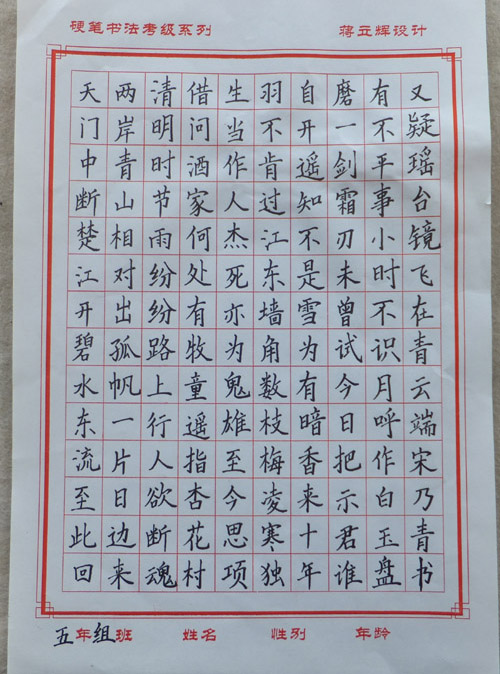 硬笔书法考级系列
蒋立辉设计
天门中断楚江开碧水东流至此回
两岸青山相对出孤帆一片日边来
清明时节雨纷纷路上行人欲断魂
借问酒家何处有牧童遥指杏花村
生当作人杰死亦为鬼雄至今思项
羽不肯过江东墙角数枝梅凌寒独
自开遥知不是雪为有暗香来十年
磨一剑霜刃未曾试今日把示君谁
有不平事小时不识月呼作白玉盘
又疑瑶台镜飞在青云端宋乃青书
五年组班 姓名 性别 年龄